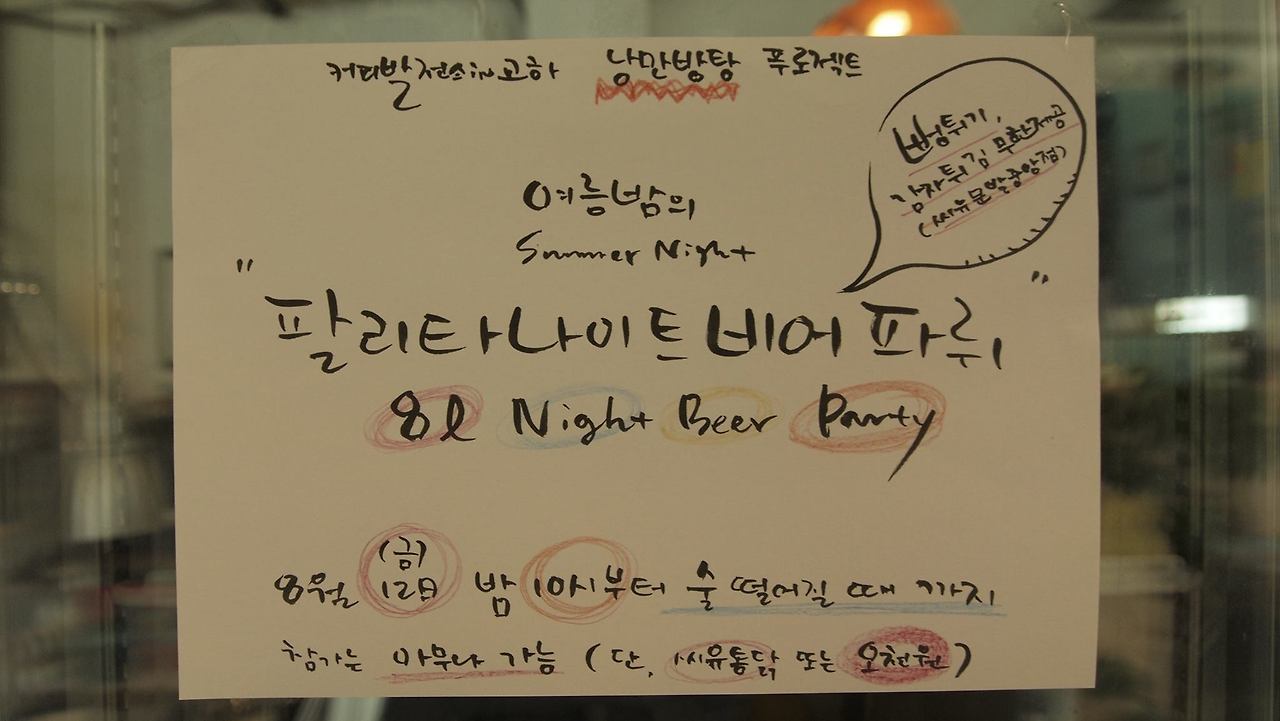 커피발전소 in 고하 낭만방탕 푸로젝트
뻥튀기,
감자튀김 무한제공
(씨유문발중앙점)
여름밤의
Summer Night
"팔리타나이트비어파뤼"
8l Night Beer Party
8월 12日 (금) 밤 10시부터 술 떨어질 때 까지
참가는 아무나 가능 (단, 씨유통닭 또는 오천원)